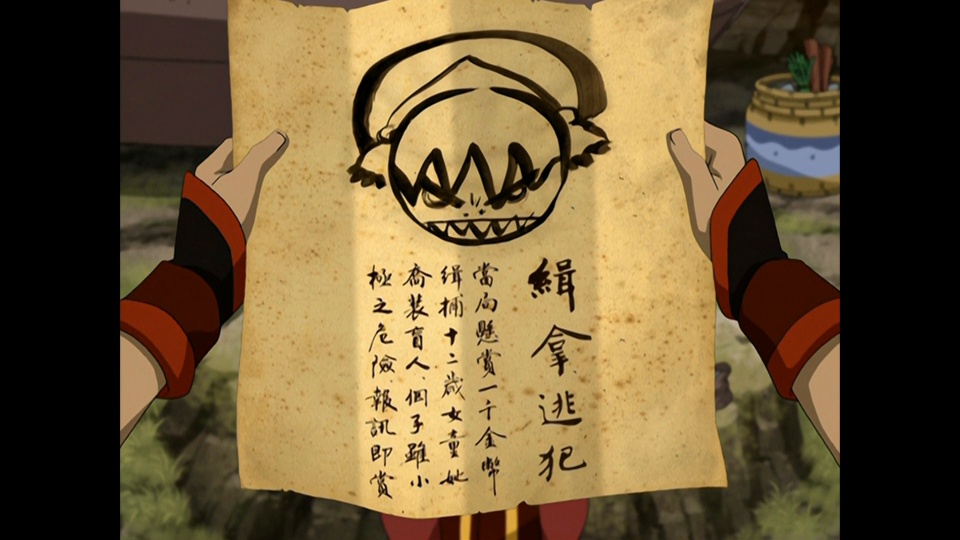 緝拿逃犯
當局懸賞一千金幣
緝捕十二歲女童她
喬裝盲人、個子雖小
極之危險報訊即賞